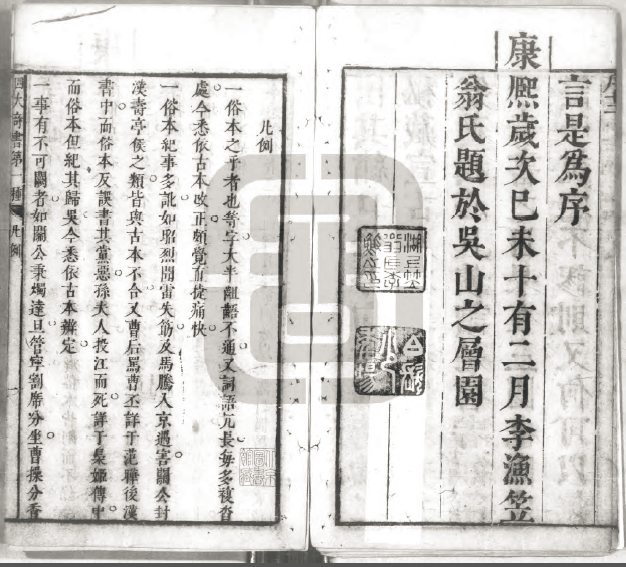 言是為序
康熙歲次己未十有二月李漁笠
翁氏題於吳山之層園
凡例
一俗本之乎者也等字大半齟齬不通又詞語冗長每多複沓
處今悉依古本改正頗覺直捷痛快
一俗本紀事多訛如昭烈聞雷失筯及馬騰入京遇害關公封
漢壽亭侯之類皆與古本不合又曹后罵曹丕詳于范曄後漢
書中而俗本反誤書其黨惡孫夫人投江而死詳于梟姬傳中
而俗本但紀其歸吳今悉依古本辨定
一事有不可闕者如關公秉燭達旦管寧割席分坐曹操分香
四大奇書第一種
凡例
一